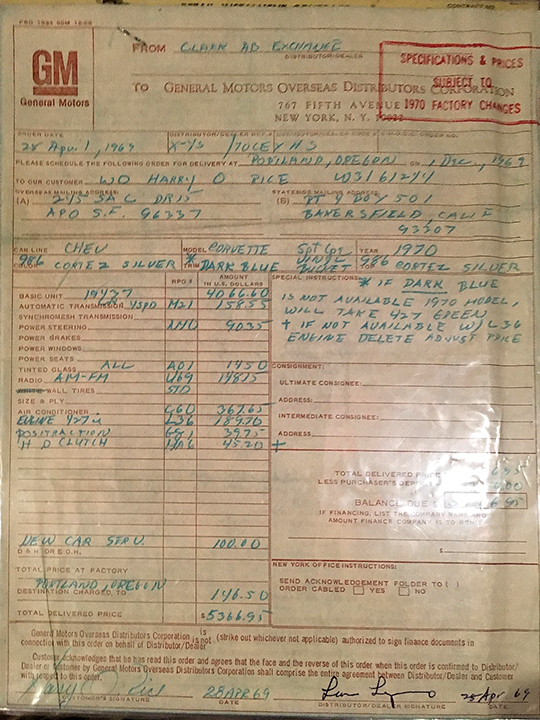 FROM CLARK AD EXCHANGE
DISTRIBUTOR/DEALER
SPECIFICATIONS & PRICES
SUBJECT TO
1970 FACTORY CHANGES
GM
General Motors
TO GENERAL MOTORS OVERSEAS DISTRIBUTORS CORPORATION
767 FIFTH AVENUE
NEW YORK, N. Y. 10022
ORDER DATE
28 April, 1969
PLEASE SCHEDULE THE FOLLOWING ORDER FOR DELIVERY AT PORTLAND, OREGON ON 1 DEC, 1969
TO OUR CUSTOMER WO HARRY O RICE W3161244
OVERSEAS MAILING ADDRESS: STATESIDE MAILING ADDRESS:
(A) (B) RT 4 BOX 501
APO S.F. 96337 BAKERSFIELD, CALIF
93307
CAR LINE CHEV MODEL CORVETTE Spt Cpe YEAR 1970
COLOR 986 CORTEZ SILVER TRIM * DARK BLUE VINYL BUCKET 986 TOP CORTEZ SILVER
RPO #'S AMOUNT IN U.S. DOLLARS
BASIC UNIT 19437 4066.60
AUTOMATIC TRANSMISSION 4SPD M21
SYNCHROMESH TRANSMISSION
POWER STEERING N40 90.35
POWER BRAKES
POWER WINDOWS
POWER SEATS
TINTED GLASS ALL A01 14.50
RADIO AM-FM U69
WALL TIRES STD
SIZE & PLY
AIR CONDITIONER C60 367.65
ENGINE 427 L36
POSITRACTION G81 39.75
H D CLUTCH 45.20 +
SPECIAL INSTRUCTIONS:
* IF DARK BLUE
IS NOT AVAILABLE 1970 MODEL,
WILL TAKE 427 GREEN
+ IF NOT AVAILABLE W/L36
ENGINE DELETE ADJUST PRICE
CONSIGNMENT:
ULTIMATE CONSIGNEE:
ADDRESS:
INTERMEDIATE CONSIGNEE:
ADDRESS
TOTAL DELIVERED PRICE
LESS PURCHASER'S DEPOSIT
BALANCE DUE $
IF FINANCING, LIST THE COMPANY NAME AND
AMOUNT FINANCE COMPANY IS TO REMIT
$
NEW CAR SERV. 100.00
D & H OR E.O.H.
TOTAL PRICE AT FACTORY
PORTLAND, OREGON
DESTINATION CHARGED, TO 146.50
TOTAL DELIVERED PRICE $5366.95
NEW YORK OFFICE INSTRUCTIONS:
SEND ACKNOWLEDGEMENT FOLDER TO ( )
ORDER CABLED YES NO
General Motors Overseas Distributors Corporation is / is not (strike out whichever not applicable) authorized to sign finance documents in
connection with this order on behalf of Distributor/Dealer
Customer acknowledges that he has read this order and agrees that the face and the reverse of this order when this order is confirmed to Distributor/
Dealer or Customer by General Motors Overseas Distributors Corporation shall comprise the entire agreement between Distributor/Dealer and Customer
with respect to this order.
28 APR 69 25 Apr 69
CUSTOMER'S SIGNATURE DATE DISTRIBUTOR/DEALER SIGNATURE DATE